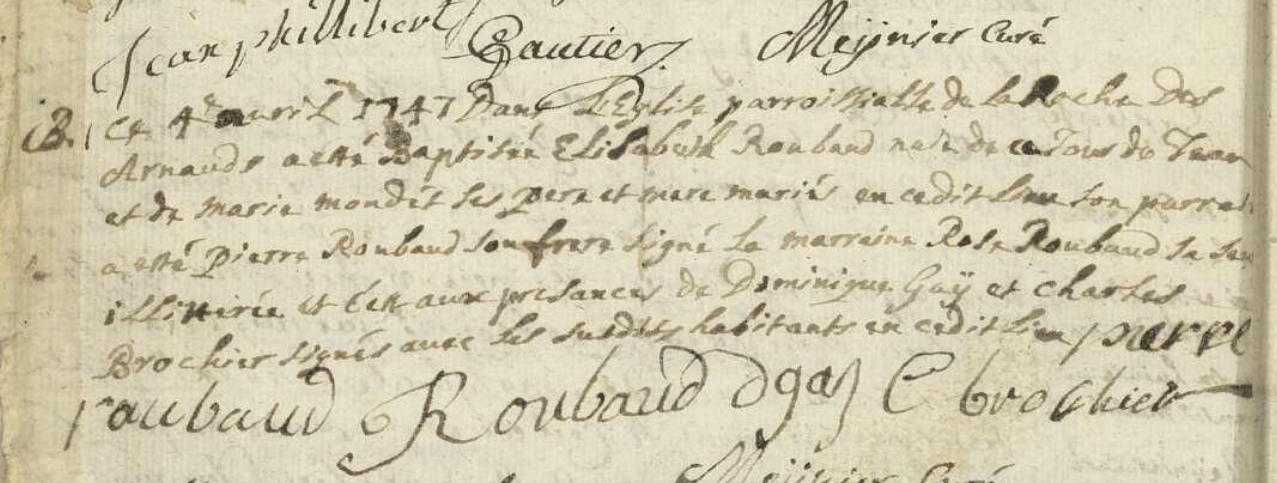 Jean phillibert Gautier Meÿnier Curé
B. ce 4e avvril 1747 Dans L'Eglise parroissialle de la Roche Des
Arnauds a etté Baptisée Elisabeth Roubaud née de ce Jour de Jean
et de marie mondet ses pere et mere mariés en cedit lieu son parrain
a etté pierre Roubaud son frere signé la marraine Rose Roubaud sa seur
illitterée et c'est aux presances de Dominique Gaÿ et charles
Brochier signés avec les susdits habitants en cedit lieu pierre
raubaud J Roubaud d gaÿ C brochier
Meÿnier Curé